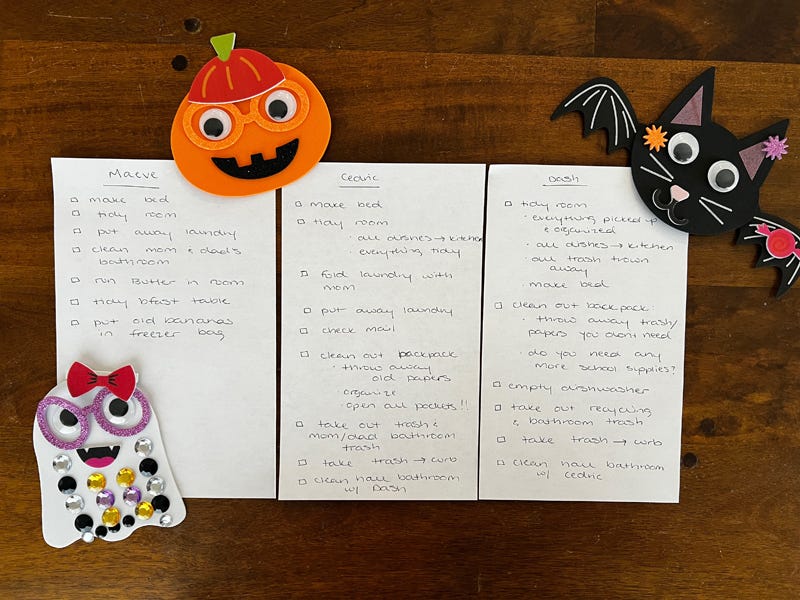 Maeve
make bed
tidy room
put away laundry
clean mom & dad's
bathroom
run Butter in room
tidy bfast table
put old bananas
in freezer bag
Cedric
make bed
tidy room
· all dishes → kitchen
· everything tidy
fold laundry with
mom
put away laundry
check mail
clean out backpack
· throw away
old papers
· organize
· open all pockets!!
take out trash &
mom/dad bathroom
trash
take trash → curb
clean hall bathroom
w/ Dash
Dash
tidy room
· everything picked up
& organized
· all dishes → kitchen
· all trash trown
away
· make bed
clean out backpack:
· throw away trash/
papers you don't need
· do you need any
more school supplies?
empty dishwasher
take out recycling
& bathroom trash
take trash → curb
clean hall bathroom
w/ Cedric